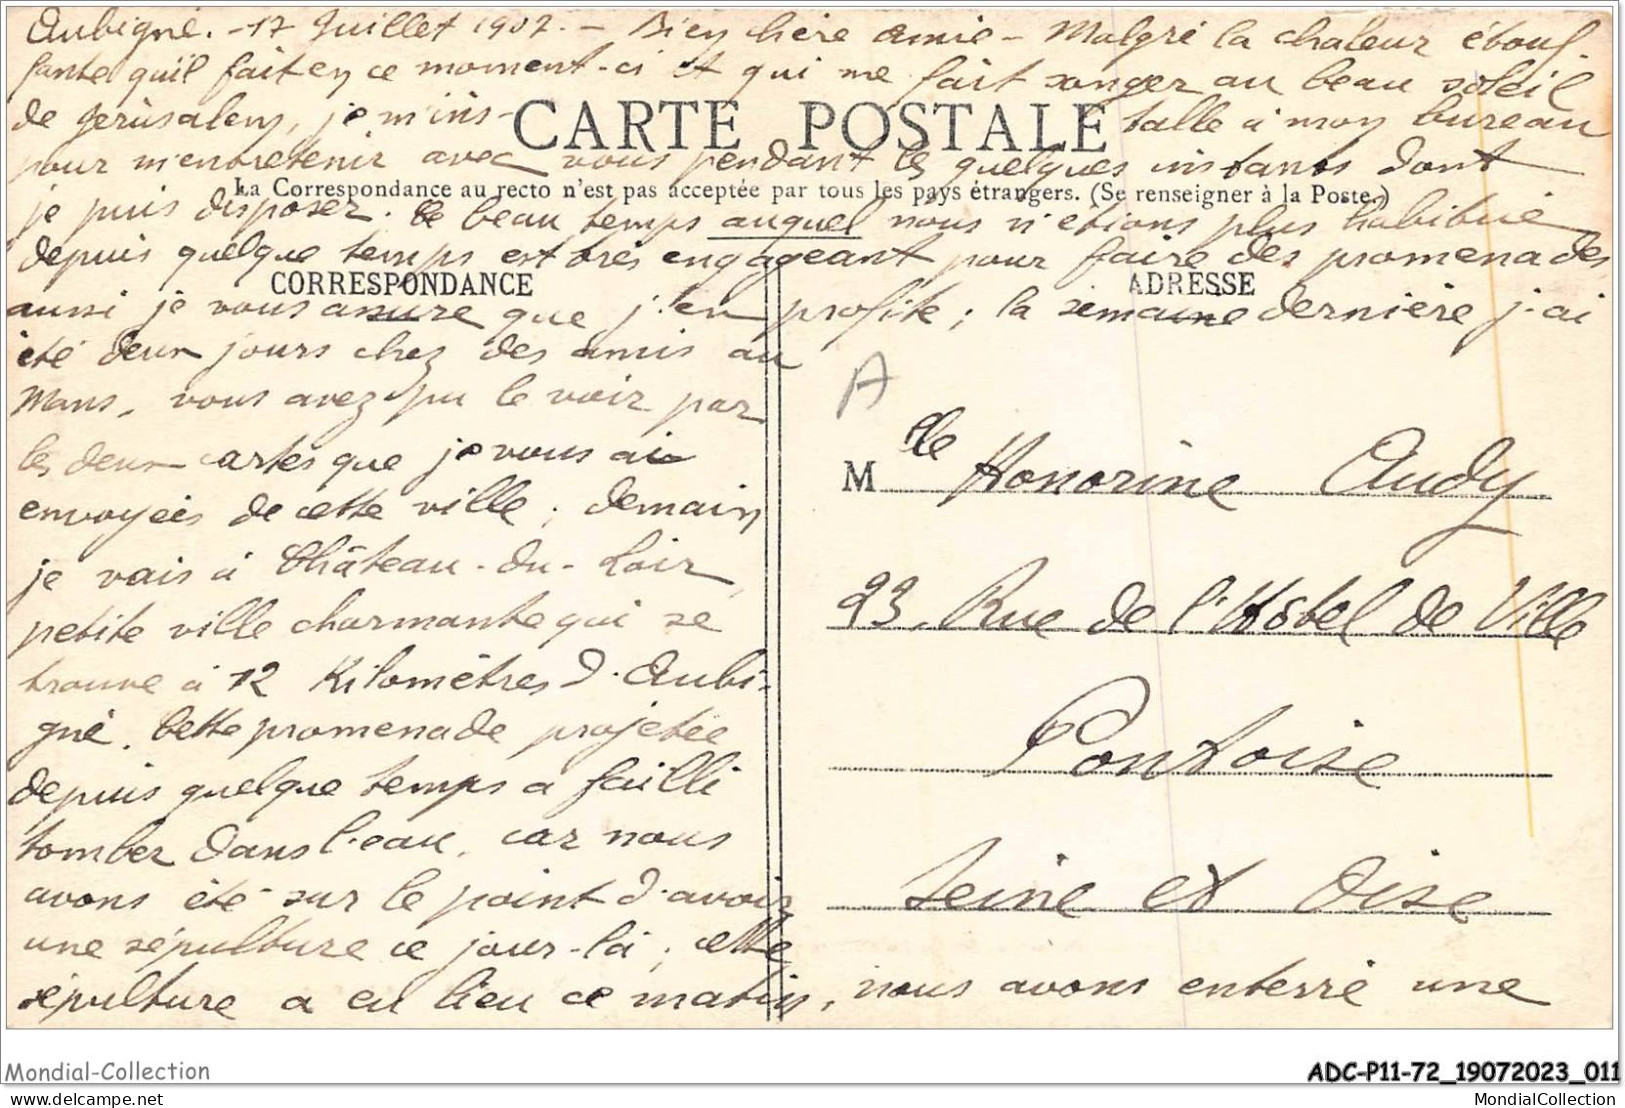 Aubigné. - 17 Juillet 1907. - Bien chère amie - Malgré la chaleur étouf-
fante qu'il fait en ce moment-ci et qui me fait songer au beau soleil
de Jérusalem, je m'ins-
CARTE POSTALE
talle à mon bureau
pour m'entretenir avec vous pendant les quelques instants dont
La Correspondance au recto n'est pas acceptée par tous les pays étrangers. (Se renseigner à la Poste.)
je puis disposer. Ce beau temps auquel nous n'étions plus habitué
depuis quelque temps est très engageant pour faire des promenades
CORRESPONDANCE
ADRESSE
aussi je vous assure que j'en profite ; la semaine dernière j'ai
été deux jours chez des amis au
Mans, vous avez pu le voir par
les deux cartes que je vous ai
envoyées de cette ville ; demain
je vais à Château-du-Loir,
petite ville charmante qui se
trouve à 12 Kilomètres d'Aubi-
gné. Cette promenade projetée
depuis quelque temps a failli
tomber dans l'eau, car nous
avons été sur le point d'avoir
une sépulture ce jour-là ; cette
sépulture a eu lieu ce matin, nous avons enterré une
A
Mlle Honorine Audy
23, Rue de l'Hôtel de Ville
Pontoise
Seine et Oise
Mondial-Collection
ADC-P11-72_19072023_011
delcampe.net
MondialCollection